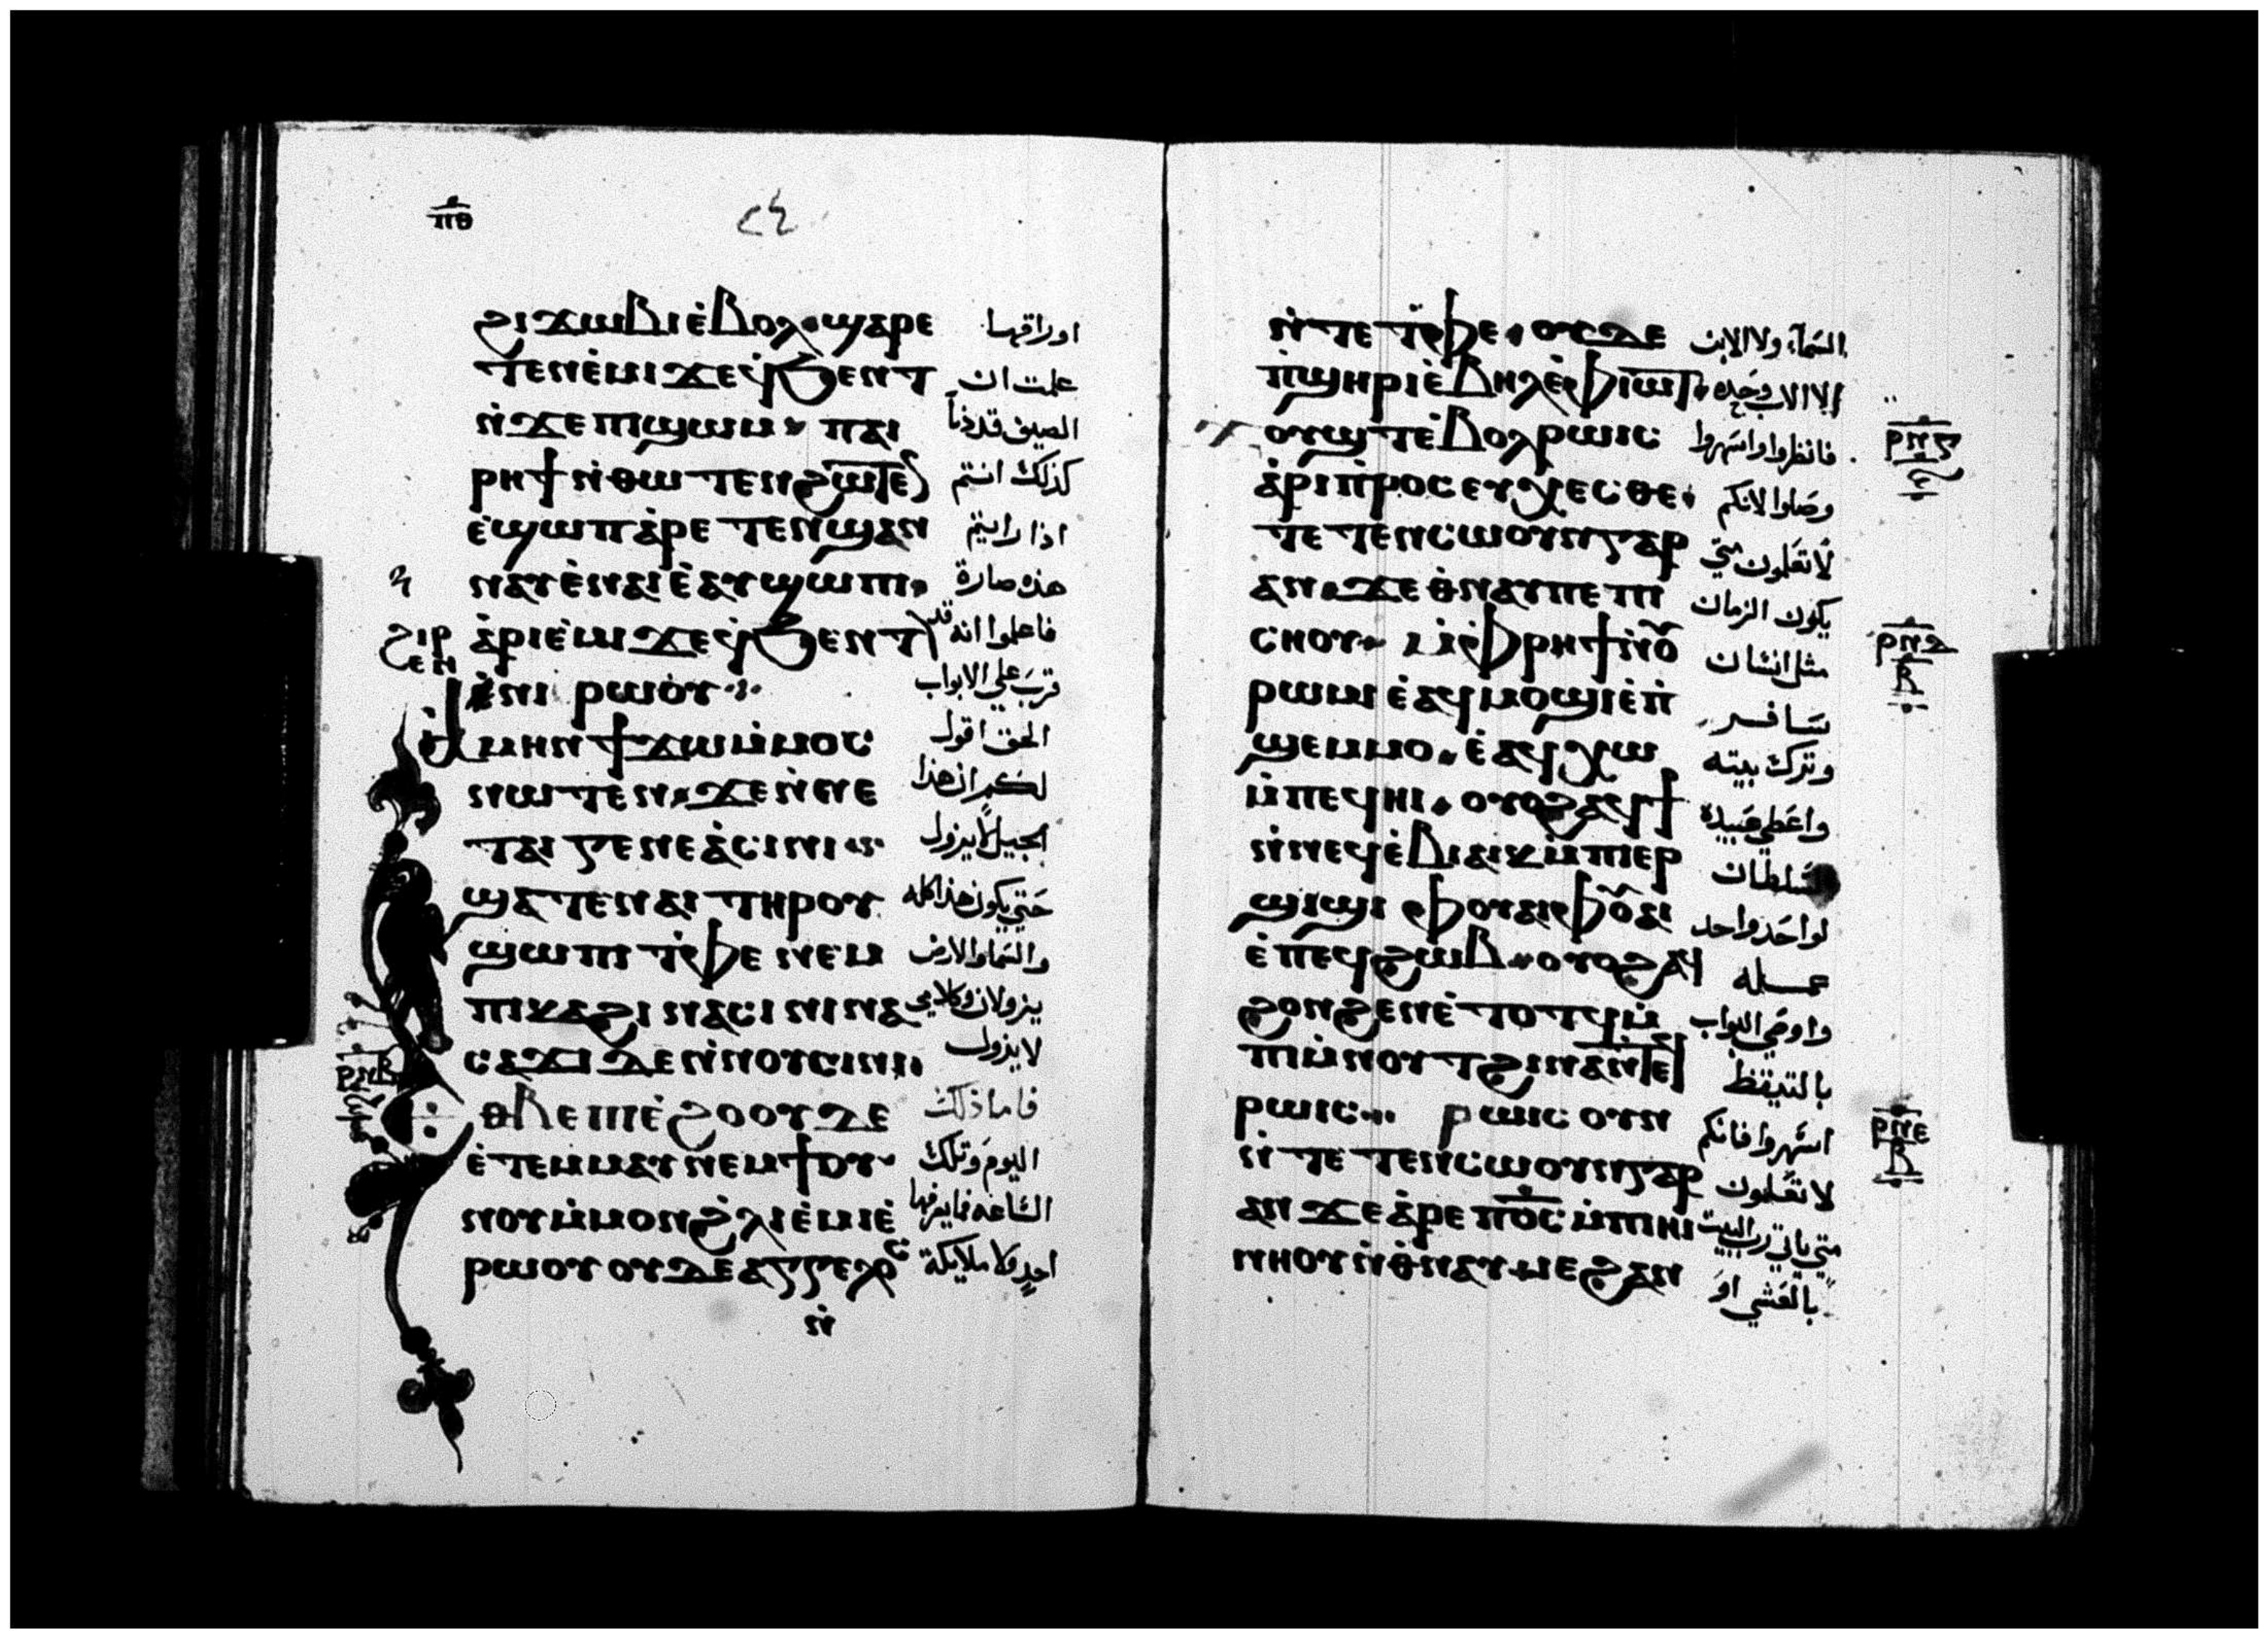 ⲡⲑ
ϩⲓϫⲱⲃⲓ ⲉ̇ⲃⲟⲗ ϣⲁⲣⲉ اوراقها
ⲧⲉⲛⲉ̇ⲙⲓ ϫⲉ ϥ̇ϧⲉⲛⲧ علمت ان
ⲛ̇ϫⲉ ⲡⲓϣⲱⲙ ⲡⲁⲓ الصيف قد دنا
ⲣⲏϯ ⲛ̇ⲑⲱⲧⲉⲛ ϩⲱⲧⲉⲛ كذلك انتم
ⲉ̇ϣⲱⲡ ⲁ̇ⲣⲉⲧⲉⲛϣⲁⲛ اذا رايتم
ⲛⲁⲩ ⲉ̇ⲛⲁⲓ ⲉ̇ⲁⲩϣⲱⲡⲓ هذه صارة
ⲁ̇ⲣⲓⲉ̇ⲙⲓ ϫⲉ ϥ̇ϧⲉⲛⲧ فاعلموا انه قد
ϩⲓⲣⲉⲛ ⲛⲓⲣⲱⲟⲩ قرب علي الابواب
ⲁ̇ⲙⲏⲛ ϯϫⲱ ⲙ̇ⲙⲟⲥ الحق اقول
ⲛⲱⲧⲉⲛ ϫⲉ ⲛ̇ⲛⲉ لكم ان هذا
ⲧⲁⲓⲅⲉⲛⲉⲁ̇ ⲥⲓⲛⲓ الجيل لا يزول
ϣⲁⲧⲉ ⲛⲁⲓ ⲧⲏⲣⲟⲩ حتي يكون هذا كله
ϣⲱⲡⲓ ⲧ̇ⲫⲉ ⲛⲉⲙ والسما والارض
ⲡⲓⲕⲁϩⲓ ⲛⲁⲥⲓⲛⲓ ⲛⲁ يزولان وكلامي
ⲥⲁϫⲓ ⲇⲉ ⲛ̇ⲛⲟⲩⲥⲓⲛⲓ لا يزول
ⲣⲛⲃ ⲉⲑⲃⲉ ⲡⲓⲉ̇ϩⲟⲟⲩ ⲇⲉ فاما ذلك
ⲉ̇ⲧⲉⲙⲙⲁⲩ ⲛⲉⲙ ϯⲟⲩ اليوم وتلك
ⲛⲟⲩ ⲙ̇ⲙⲟⲛ ϩ̇ⲗⲓ ⲉ̇ⲙⲓ ⲉ̇ الساعه فما يعرفها
ⲣⲱⲟⲩ ⲟⲩⲇⲉ ⲁⲅⲅⲉⲗⲟⲥ احد ولا ملايكة
ⲛ̇
ⲛ̇ⲧⲉ ⲧ̇ⲫⲉ ⲟⲩⲇⲉ السمآء ولا الابن
ⲡ̇ϣⲏⲣⲓ ⲉ̇ⲃⲏⲗ ⲉ̇ⲫⲓⲱⲧ الا الاب وحده
ϫⲟⲩϣⲧ ⲉ̇ⲃⲟⲗ ⲣⲱⲓⲥ فانظروا واسهروا
ⲁ̇ⲣⲓⲡ̇ⲣⲟⲥⲉⲩⲭⲉⲥⲑⲉ وصلوا لانكم
ⲧⲉⲧⲉⲛⲥⲱⲟⲩⲛ ⲅⲁⲣ لا تعلمون متي
ⲁⲛ ϫⲉ ⲑ̇ⲛⲁⲩ ⲡⲉ ⲡⲓ يكون الزمان
ⲥⲏⲟⲩ ⲙ̇ⲫⲣⲏϯ ⲛ̇ⲟⲩ مثل انسان
ⲣⲱⲙⲓ ⲉ̇ⲁϥⲙⲟϣⲓ ⲉ̇ⲡ̇ سافر
ϣⲉⲙⲙⲟ ⲉ̇ⲁϥⲭⲱ وترك بيته
ⲙ̇ⲡⲉϥⲏⲓ ⲟⲩⲟϩ ⲁϥϯ واعطي عبيده
ⲛ̇ⲛⲉϥⲉ̇ⲃⲓⲁⲓⲕ ⲙ̇ⲡⲓⲉⲣ سلطان
ϣⲓϣⲓ ⲫⲟⲩⲁⲓ ⲫⲟⲩⲁⲓ لواحد واحد
ⲉ̇ⲡⲉϥϩⲱⲃ ⲟⲩⲟϩ ⲁϥ عمله
ϩⲟⲛϩⲉⲛ ⲉ̇ⲧⲟⲧϥ ⲙ̇ واوصي البواب
ⲡⲓⲙ̇ⲛⲟⲩⲧ ϩⲓⲛⲁ ⲛ̇ⲧⲉϥ بالتيقظ
ⲣⲱⲓⲥ ⲣⲱⲓⲥ ⲟⲩⲛ اسهروا فانكم
ⲛ̇ⲧⲉⲧⲉⲛⲥⲱⲟⲩⲛ ⲅⲁⲣ لا تعلمون
ⲁⲛ ϫⲉ ⲁ̇ⲣⲉ ⲡ̇ⲟ̅ⲥ̅ ⲙ̇ⲡⲓⲏⲓ متي ياتي رب البيت
ⲛⲏⲟⲩ ⲛ̇ⲑ̇ⲛⲁⲩ ⲙⲉ ϩⲁⲛ بالعشي او
ⲣⲛⲅ
ⲣⲛⲇ
ⲃ
ⲣⲛⲉ
ⲃ